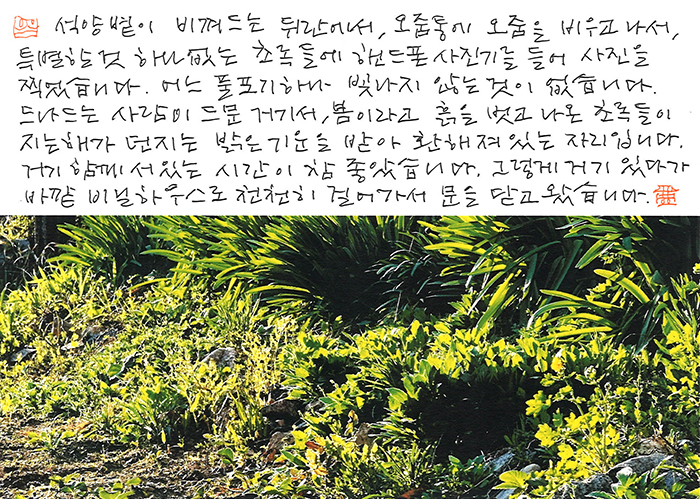 석양볕이 비껴드는 뒤란에서, 오줌통에 오줌을 비우고 나서,
특별할 것 하나 없는 초록들에 핸드폰 사진기를 들어 사진을
찍었습니다. 어느 풀포기 하나 빛나지 않는 것이 없습니다.
드나드는 사람이 드문 거기서, 봄이라고 흙을 벗고 나온 초록들이
지는 해가 던지는 밝은 기운을 받아 환해져 있는 자리입니다.
거기 함께 서 있는 시간이 참 좋았습니다. 그렇게 거기 있다가
바깥 비닐하우스로 천천히 걸어가서 문을 닫고 왔습니다.